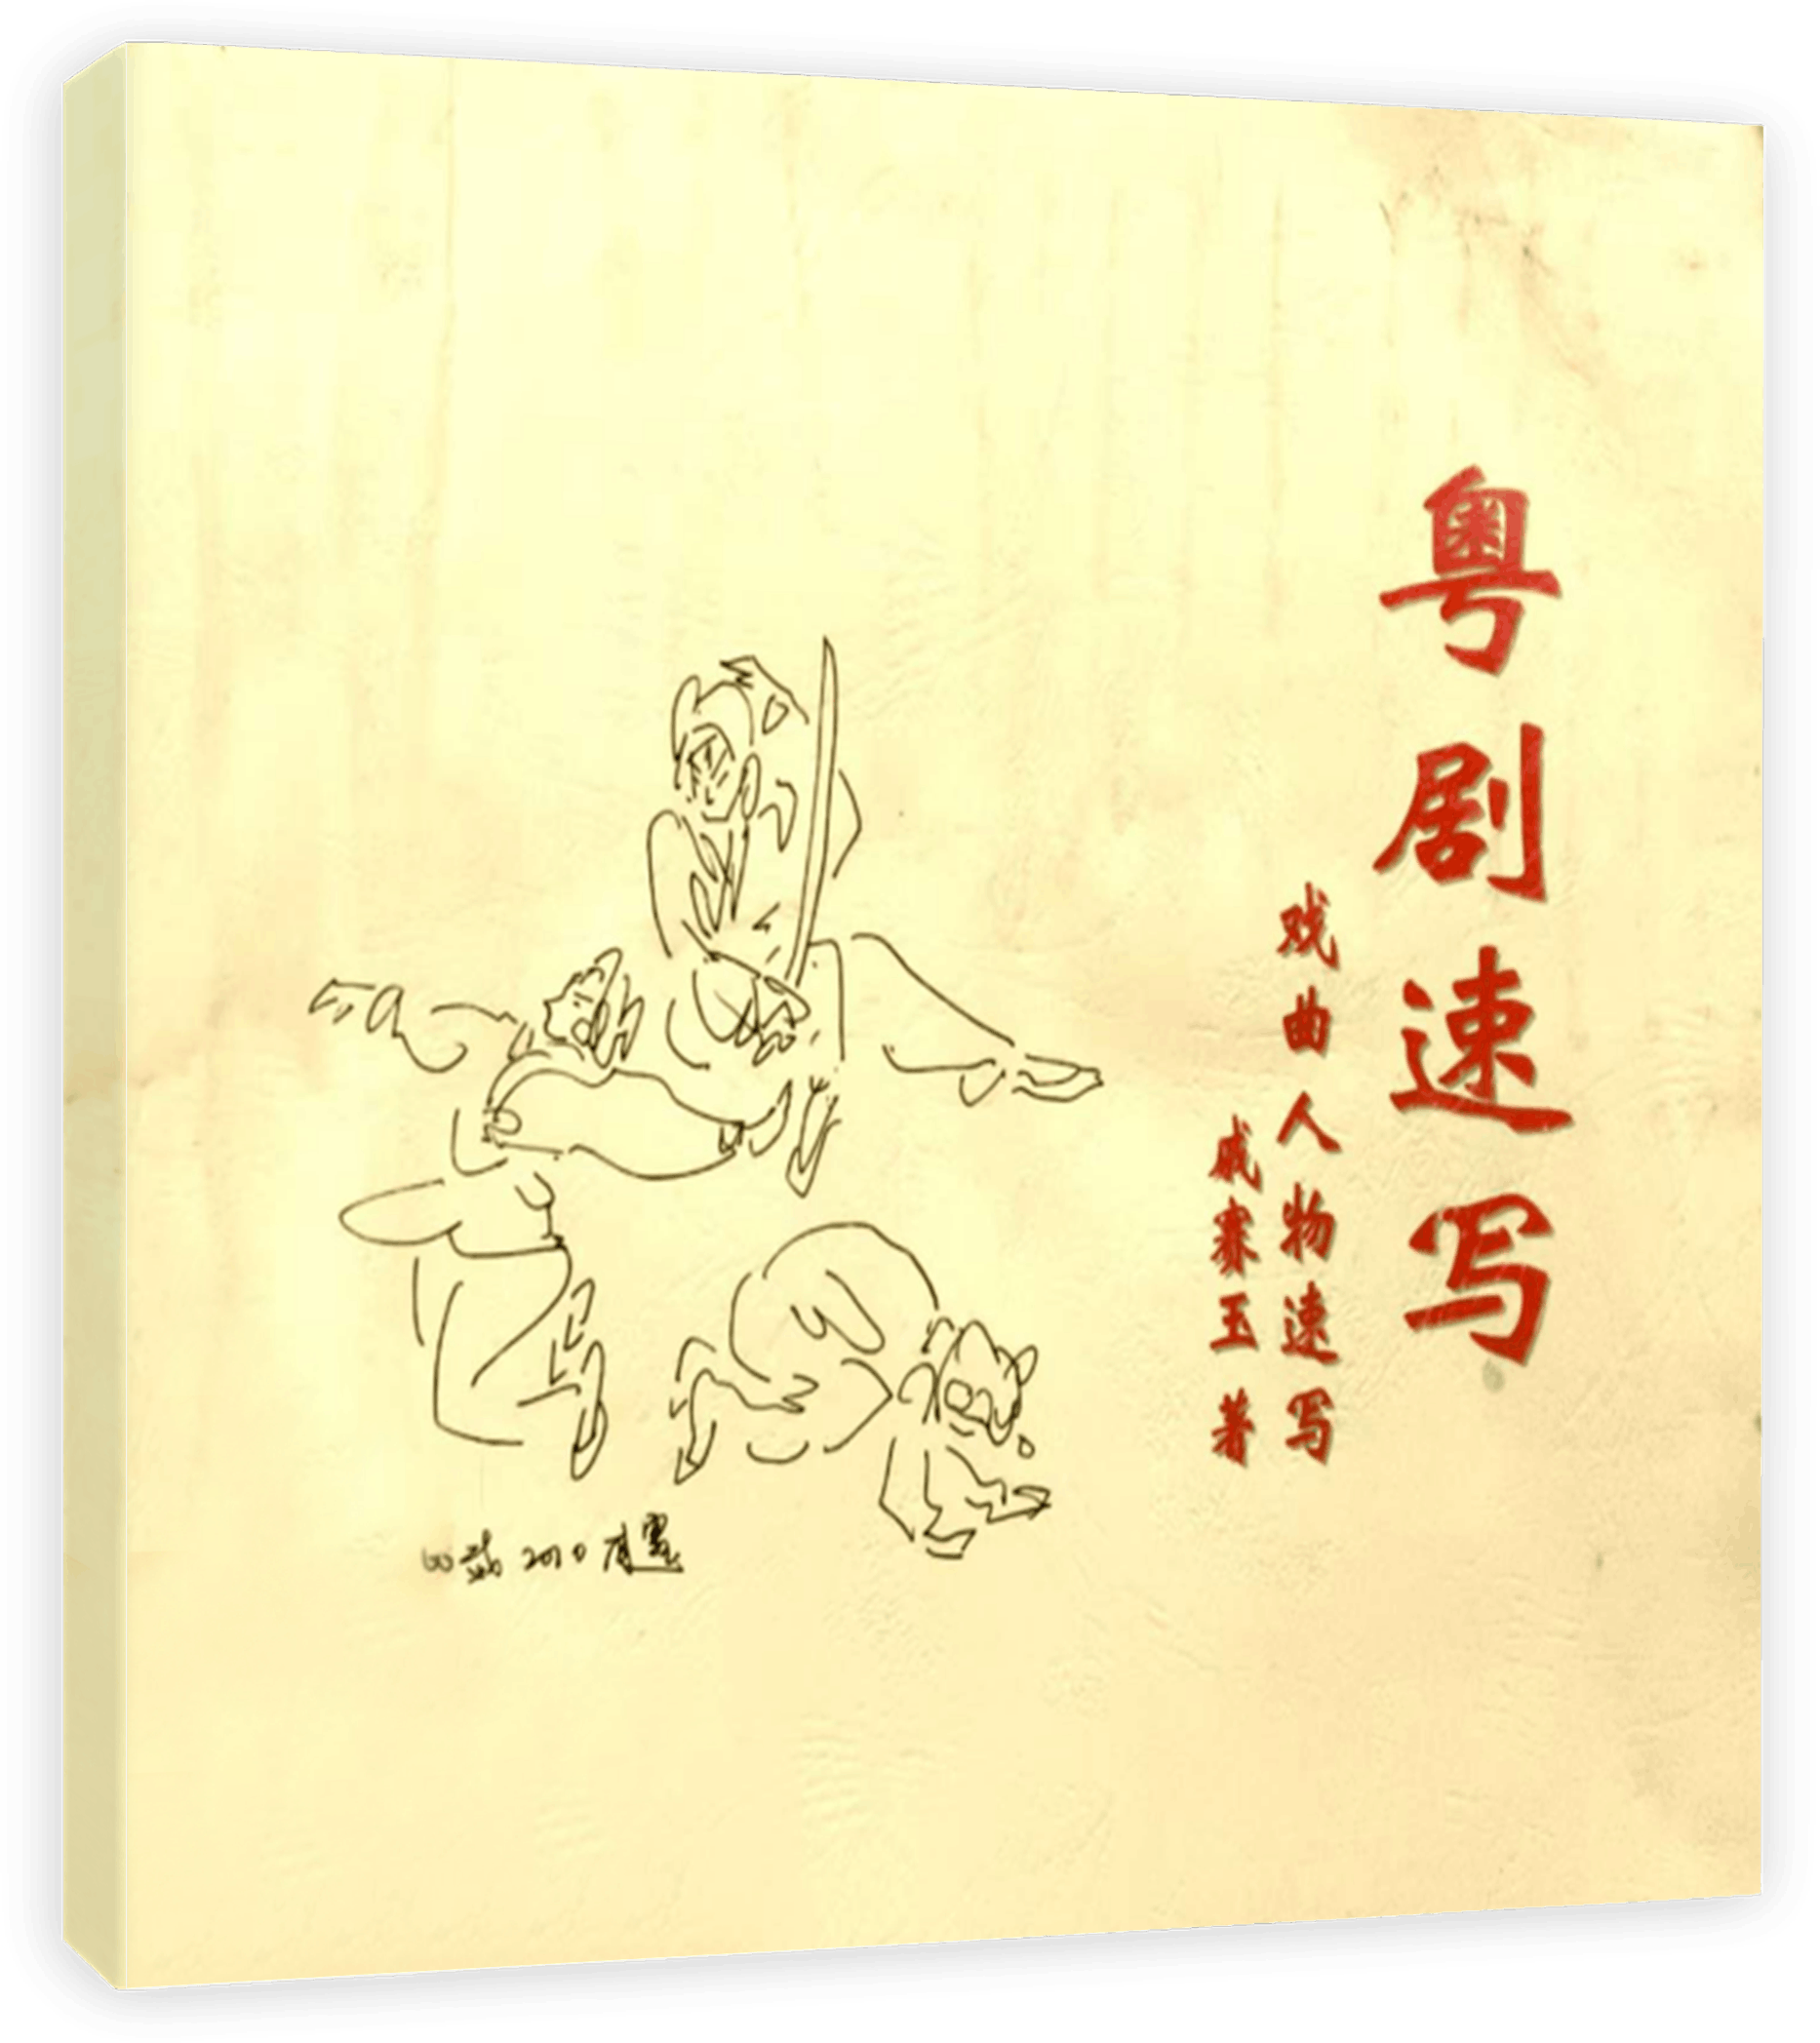 粤剧速写
戏曲人物速写
戚赛玉 著
2010